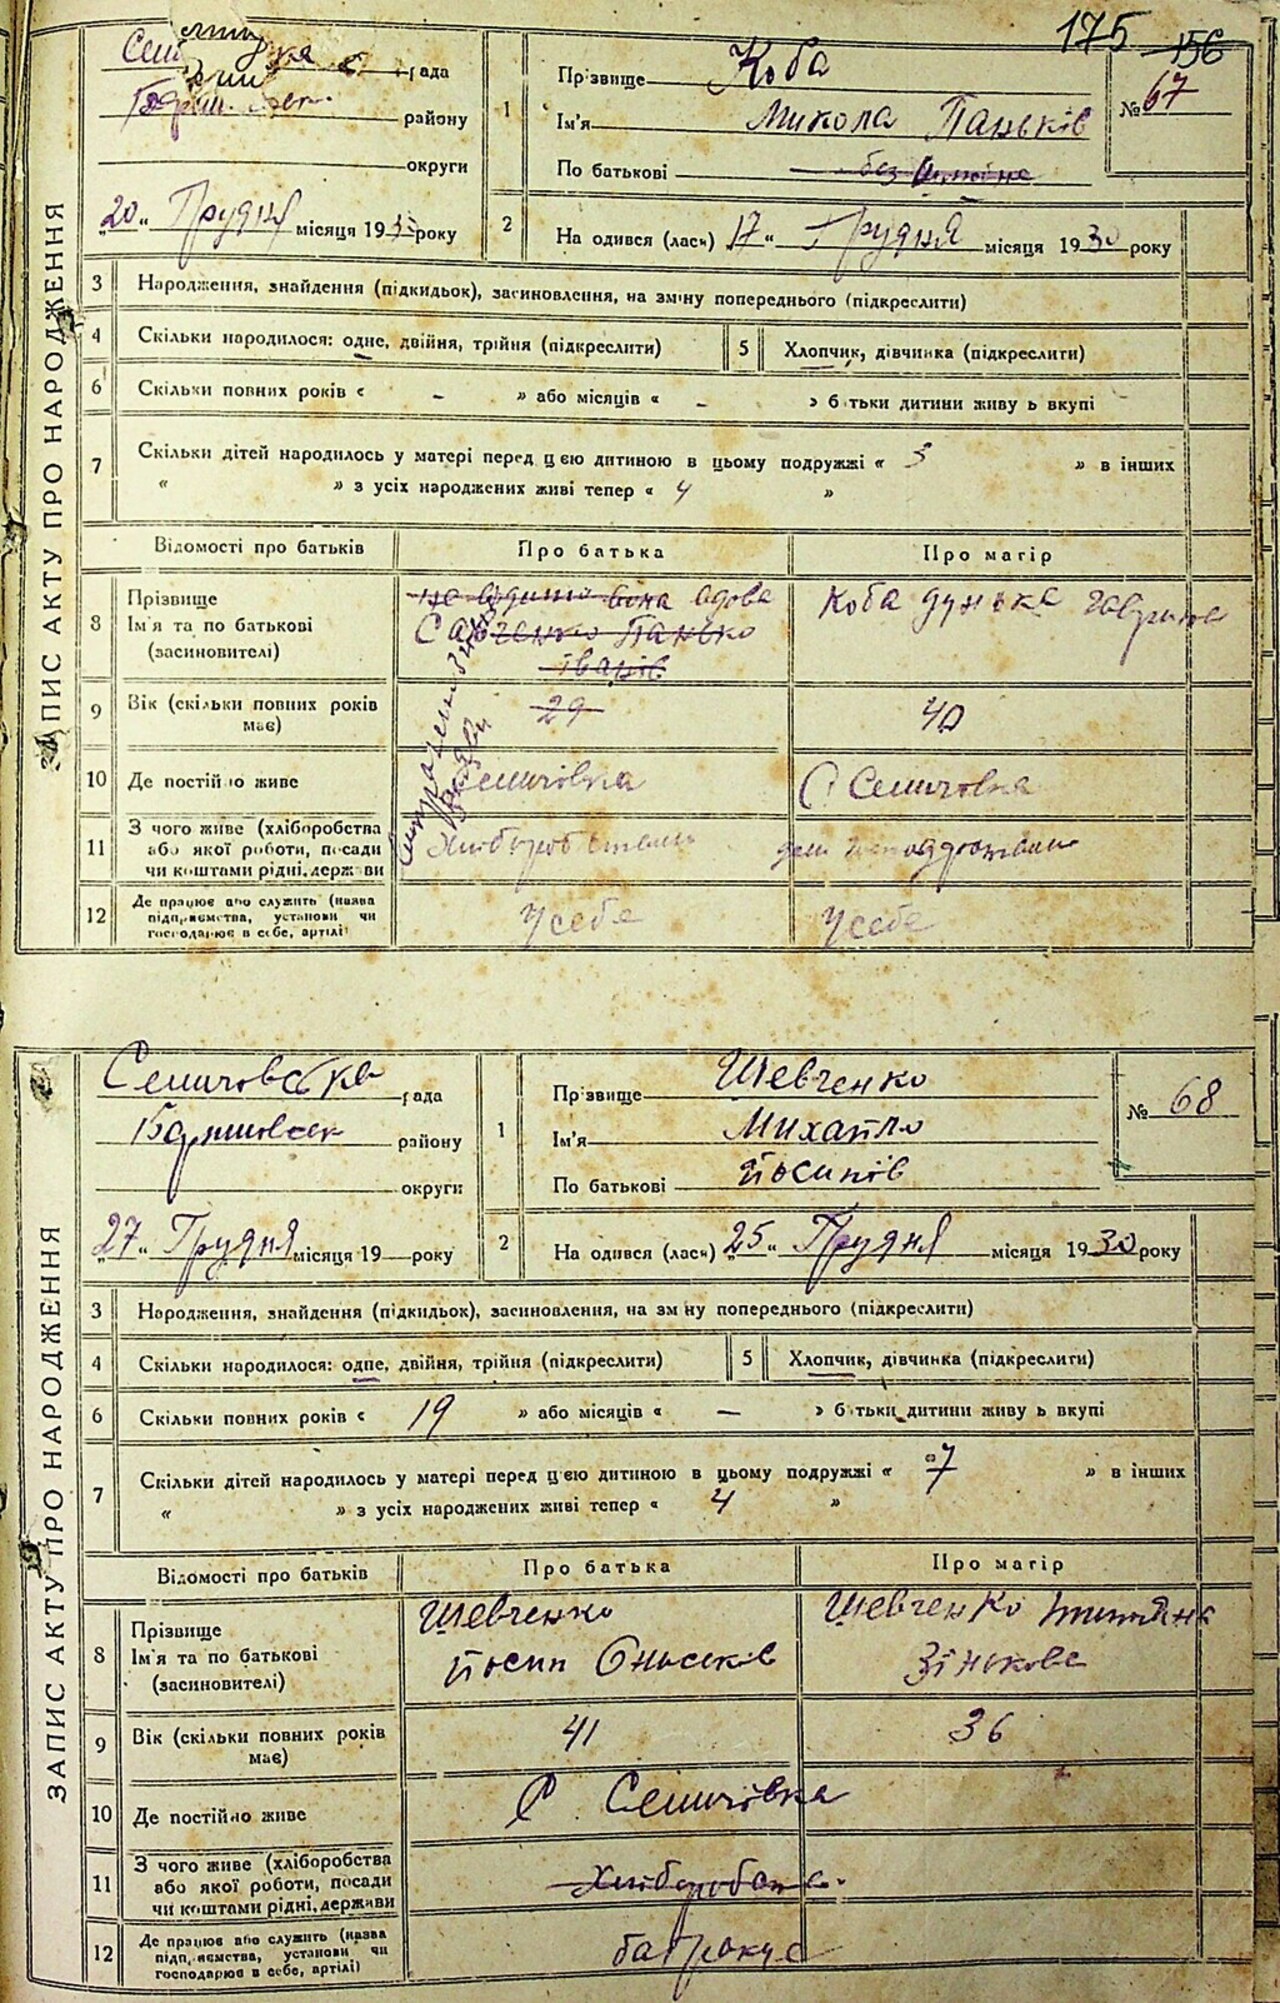 175 156
ЗАПИС АКТУ ПРО НАРОДЖЕННЯ
рада
району
округи
20 " Грудня місяця 193 року
1
Прізвище Коба
Ім'я Микола Паньків
По батькові без
№ 67
2
На одився (лась) 17 " Грудня місяця 1930 року
3 Народження, знайдення (підкидьок), засиновлення, на зміну попереднього (підкреслити)
4 Скільки народилося: одне, двійня, трійня (підкреслити)
5 Хлопчик, дівчинка (підкреслити)
6 Скільки повних років « - » або місяців « - » б тьки дитини живу ь вкупі
7 Скільки дітей народилось у матері перед цією дитиною в цьому подружжі « 3 » в інших
« » з усіх народжених живі тепер « 4 »
Відомості про батьків
Про батька
Про матір
8 Прізвище
Ім'я та по батькові
(засиновителі)
вона вдова
Савченко Панько
Іванів
Коба Дунька
9 Вік (скільки повних років
має)
29
40
10 Де постійно живе
Семичовка
С Семичовка
11 З чого живе (хліборобства
або якої роботи, посади
чи коштами рідні, держави
12 Де працює або служить (назва
підприємства, установи чи
господарює в себе, артілі)
У себе
У себе
ЗАПИС АКТУ ПРО НАРОДЖЕННЯ
рада
району
округи
27 " Грудня місяця 19 — року
1
Прізвище Шевченко
Ім'я Михайло
По батькові Йосипів
№ 68
2
На одився (лась) 25 " Грудня місяця 1930 року
3 Народження, знайдення (підкидьок), засиновлення, на зміну попереднього (підкреслити)
4 Скільки народилося: одне, двійня, трійня (підкреслити)
5 Хлопчик, дівчинка (підкреслити)
6 Скільки повних років « 19 » або місяців « — » б тьки дитини живу ь вкупі
7 Скільки дітей народилось у матері перед цією дитиною в цьому подружжі « 7 » в інших
« » з усіх народжених живі тепер « 4 »
Відомості про батьків
Про батька
Про матір
8 Прізвище
Ім'я та по батькові
(засиновителі)
Шевченко
Йосип
Шевченко
Зінькова
9 Вік (скільки повних років
має)
41
36
10 Де постійно живе
С Семичовка
11 З чого живе (хліборобства
або якої роботи, посади
чи коштами рідні, держави
12 Де працює або служить (назва
підприємства, установи чи
господарює в себе, артілі)
батракує